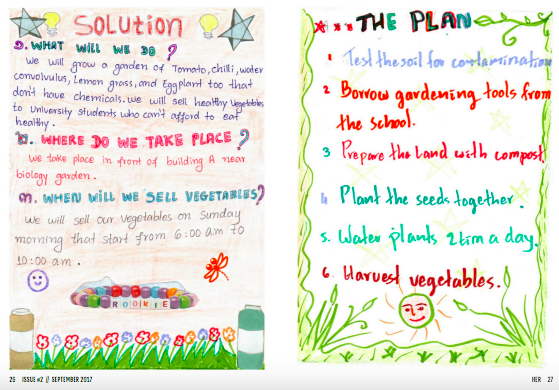 SOLUTION
១. WHAT WILL WE DO ?
We will grow a garden of Tomato, chilli, water
convolvulus, Lemon grass, and Eggplant too that
don't have chemicals. we will sell healthy Vegetables
to University students who can't afford to eat
healthy.
WHERE DO WE TAKE PLACE ?
We take place in front of building A near
biology garden.
WHEN WILL WE SELL VEGETABLES?
We will sell our Vegetables on Sunday
morning that start from 6:00 am to
10:00 am.
ROOKIE
26 ISSUE #2 // SEPTEMBER 2017
THE PLAN
1. Test the soil for contamination
2. Borrow gardening tools from
the school.
3 Prepare the land with compost
4 Plant the seeds together.
5. Water plants 2 tim a day.
6. Harvest vegetables.
HER 27